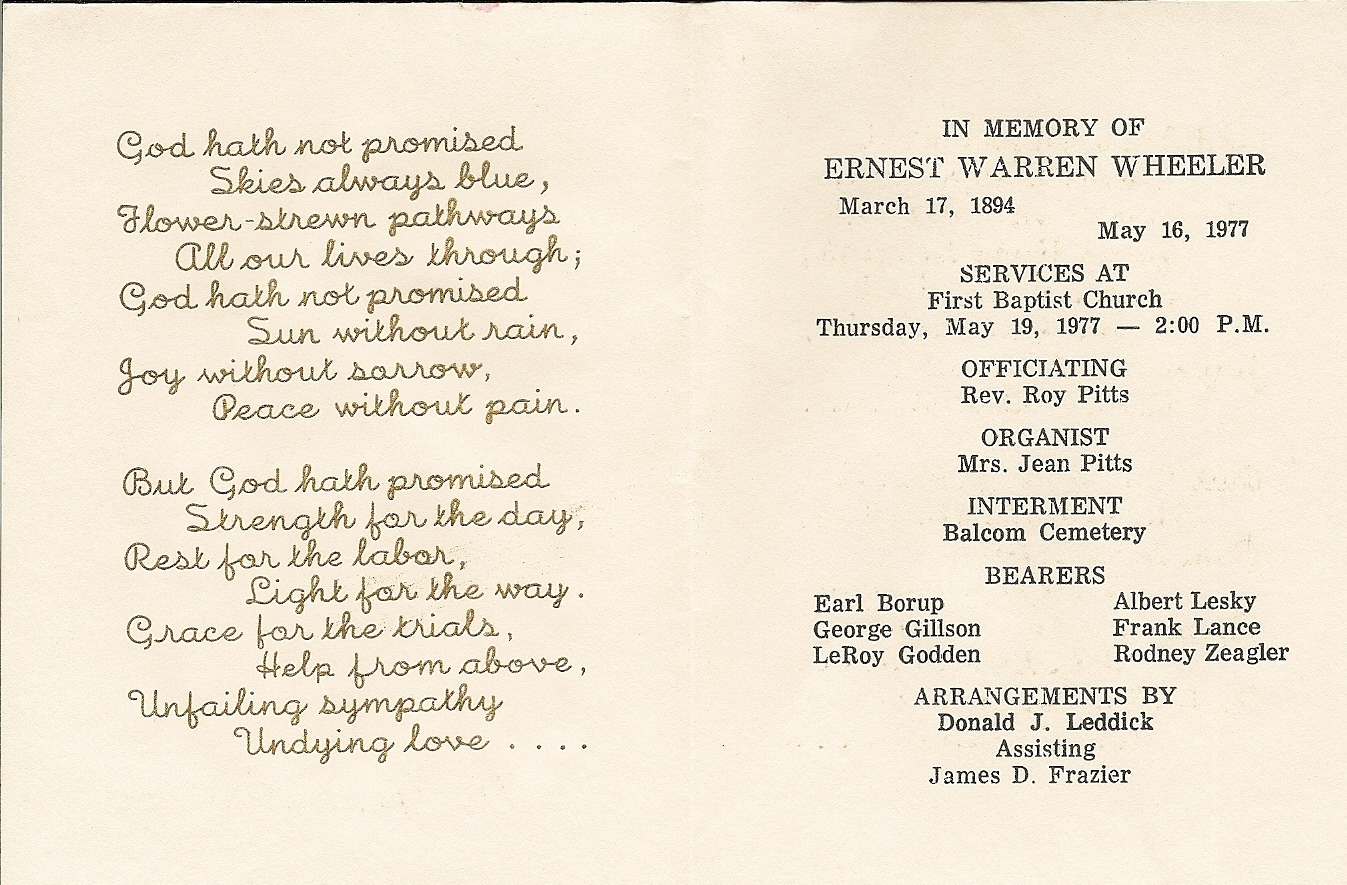 God hath not promised
Skies always blue,
Flower-strewn pathways
All our lives through;
God hath not promised
Sun without rain,
Joy without sorrow,
Peace without pain.
But God hath promised
Strength for the day,
Rest for the labor,
Light for the way.
Grace for the trials,
Help from above,
Unfailing sympathy
Undying love . . . .
IN MEMORY OF
ERNEST WARREN WHEELER
March 17, 1894
May 16, 1977
SERVICES AT
First Baptist Church
Thursday, May 19, 1977 — 2:00 P.M.
OFFICIATING
Rev. Roy Pitts
ORGANIST
Mrs. Jean Pitts
INTERMENT
Balcom Cemetery
BEARERS
Earl Borup Albert Lesky
George Gillson Frank Lance
LeRoy Godden Rodney Zeagler
ARRANGEMENTS BY
Donald J. Leddick
Assisting
James D. Frazier